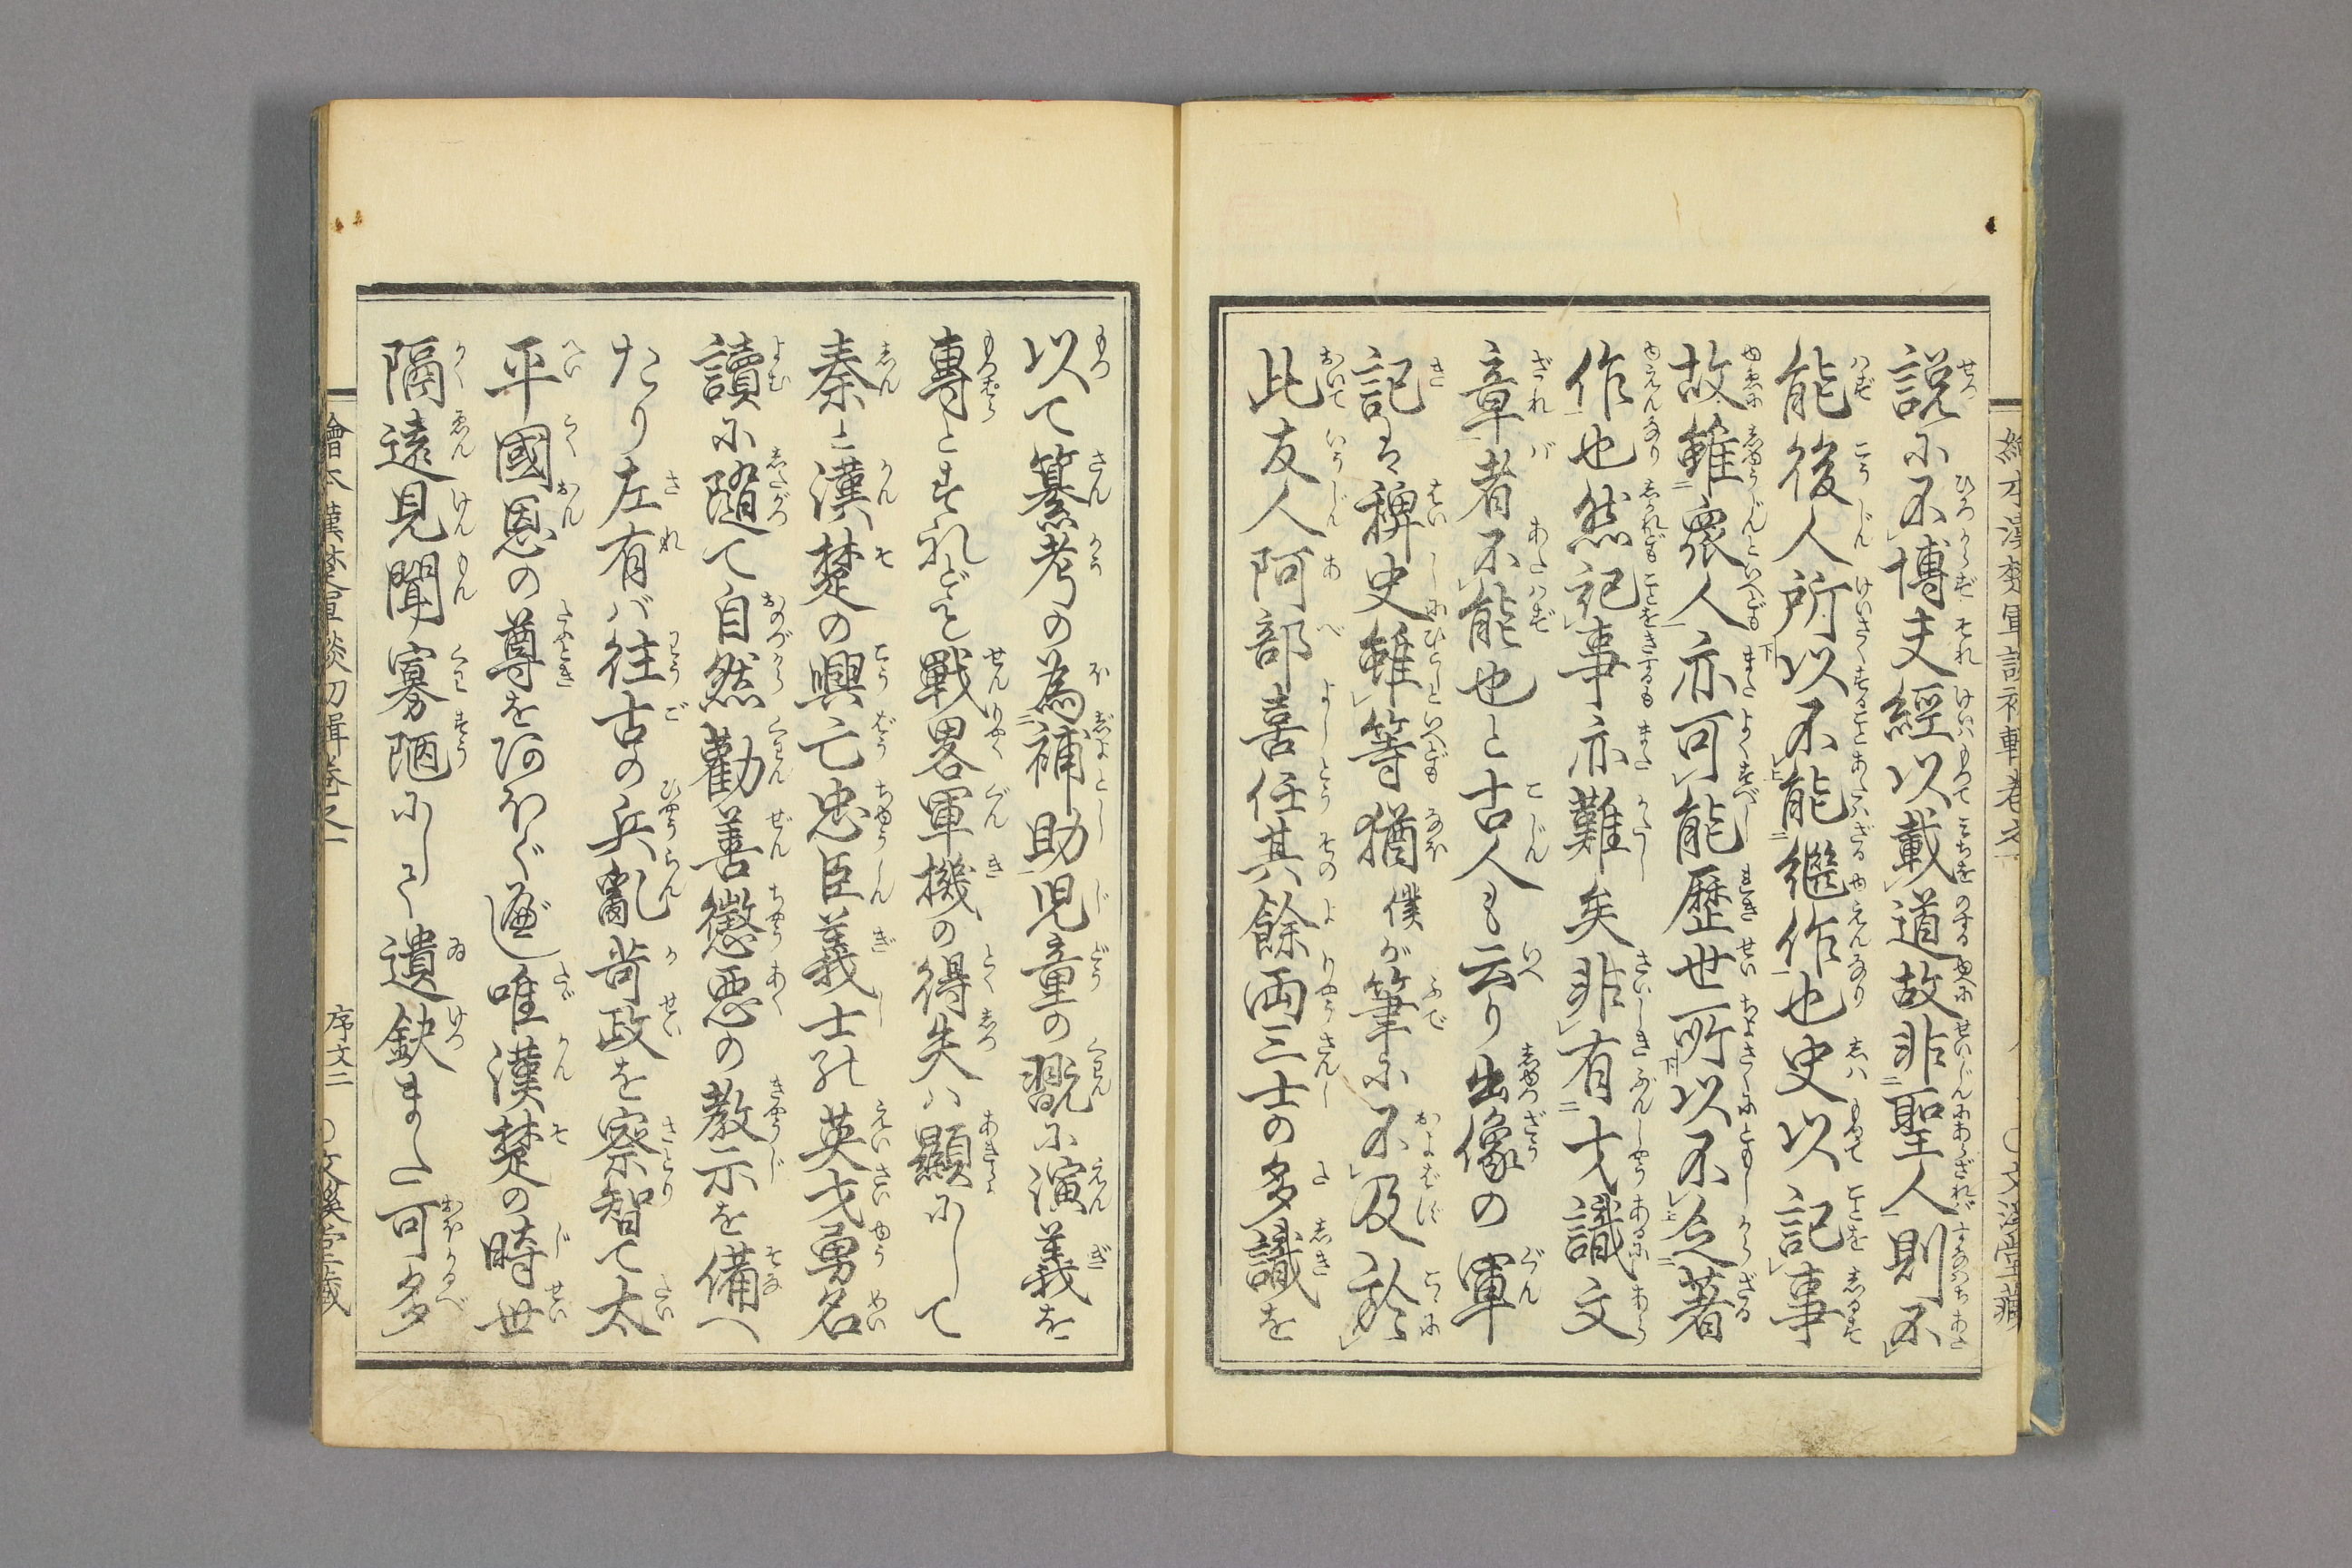 説に不博夫經以載道故非聖人則不
能後人所以不能繼作也史以記事
故雖衆人亦可能歴世所以不乏著
作也然記事亦難矣非有才識文
章者不能也と古人も云り出像の軍
記は稗史雖等猶僕が筆に不及於
此友人阿部喜任其餘両三士の多識を
以て纂考の為補助児童の翫に演義を
專とすれども戰畧軍機の得失ハ顯にして
秦と漢楚の興亡忠臣義士の英才勇名
讀に隨て自然勸善懲悪の教示を備へ
たり左有バ往古の兵亂苛政を察智て太
平國恩の尊をあふぐべし唯漢楚の時世
隔遠見聞寡陋にして遺缺また可多
繪本漢楚軍談初輯巻之一
序文二
○文溪堂藏